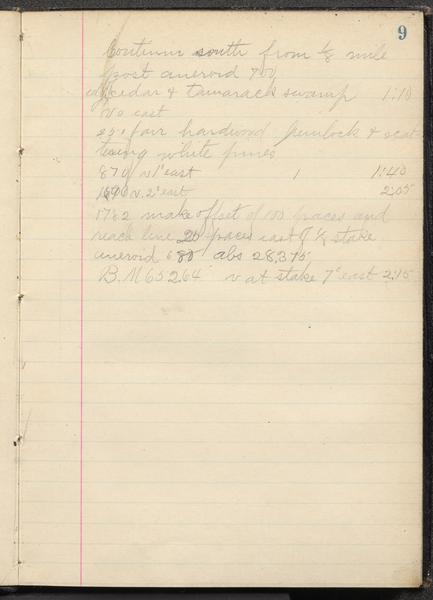 9
Continue south from 1/8 mile
post aneroid 700
cedar & tamarack swamp 1:10
v 0 east
fair hardwood hemlock & scat-
tering white pines
870 v 1° east 1:40
1690 v. 2° east 2:05
1782 make offset of 100 paces and
reach line 20 paces east of 1/4 stake
aneroid 680 abs 28.375,
B. M 65264 v at stake 7° east 2:15